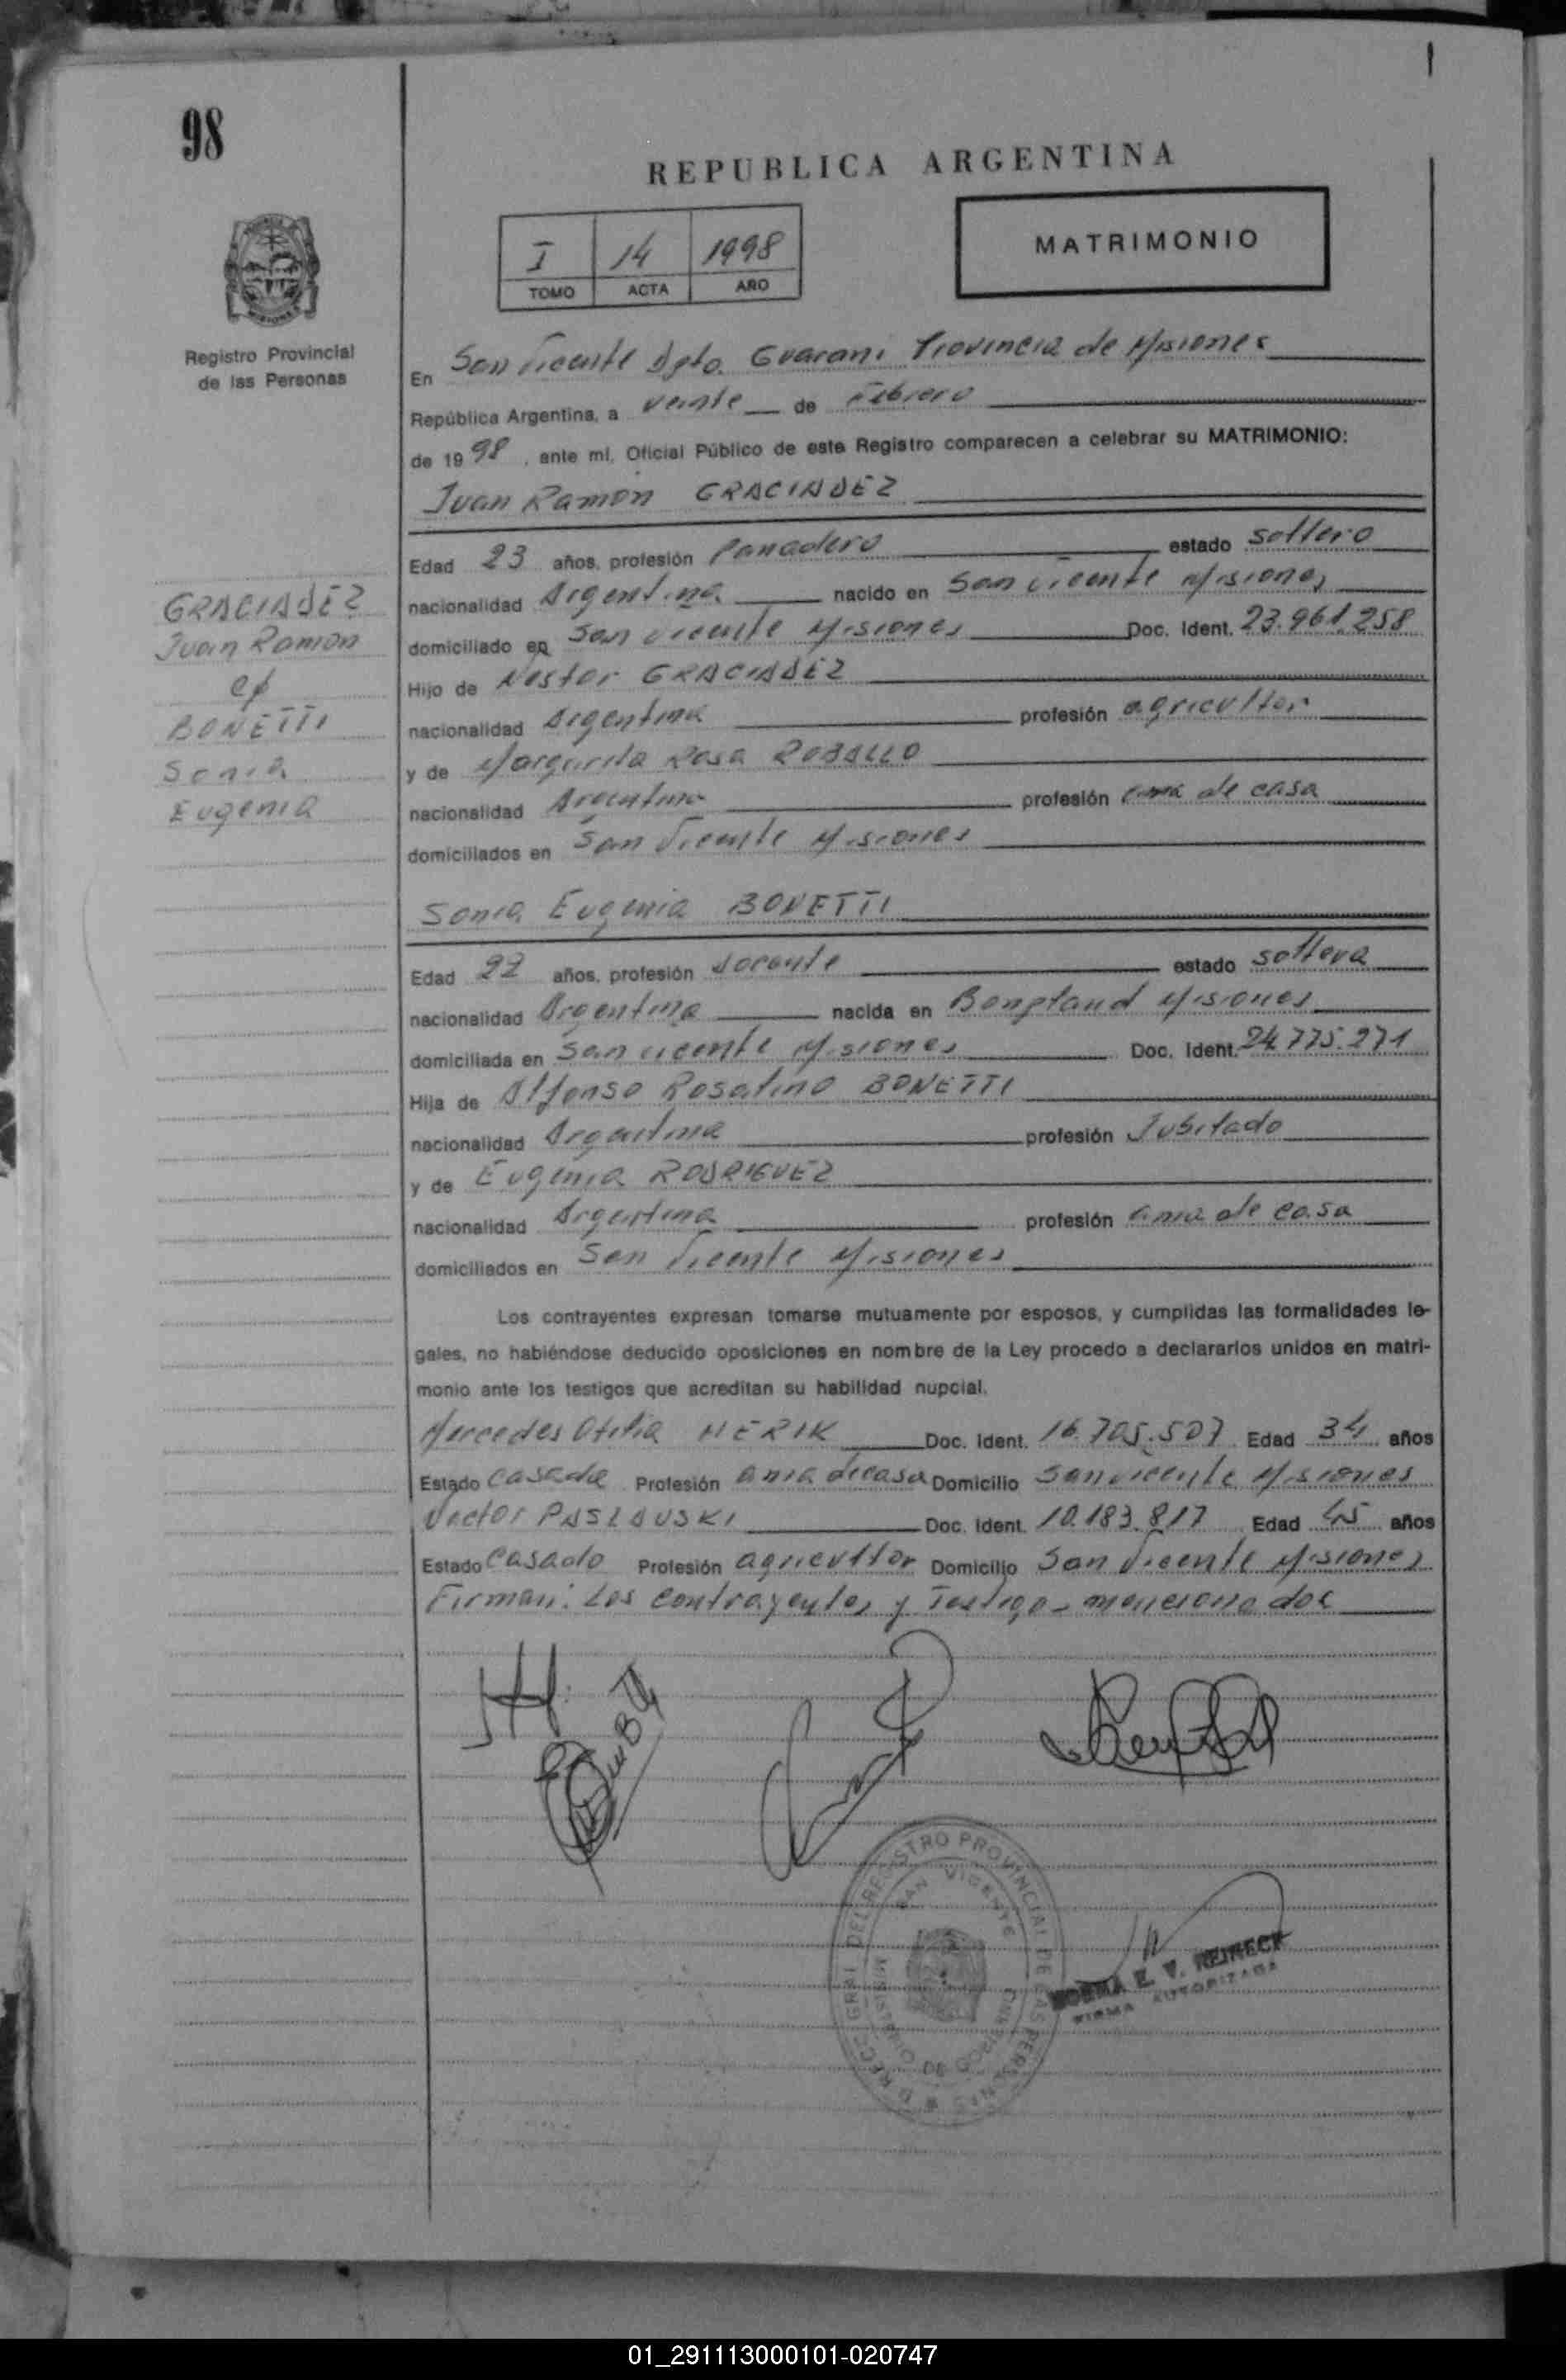 98
REPUBLICA ARGENTINA
I 14 1998
TOMO ACTA AÑO
MATRIMONIO
Registro Provincial
de las Personas
En San Vicente Dpto. Guarani Provincia de Misiones
República Argentina, a veinte de Febrero
de 1998, ante mí, Oficial Público de este Registro comparecen a celebrar su MATRIMONIO:
Juan Ramon GRACIADEZ
Edad 23 años, profesión Panadero estado soltero
nacionalidad Argentina nacido en San Vicente Misiones
domiciliado en San Vicente Misiones Doc. Ident. 23.961.258
Hijo de Nestor GRACIADEZ
nacionalidad Argentina profesión agricultor
y de Margarita Rosa ROBALLO
nacionalidad Argentina profesión ama de casa
domiciliados en San Vicente Misiones
GRACIADEZ
Juan Ramon
c/
BONETTI
Sonia
Eugenia
Sonia Eugenia BONETTI
Edad 22 años, profesión Docente estado soltera
nacionalidad Argentina nacida en Bonpland Misiones
domiciliada en San Vicente Misiones Doc. Ident. 24.775.271
Hija de Alfonso Rosalino BONETTI
nacionalidad Argentina profesión Jubilado
y de Eugenia RODRIGUEZ
nacionalidad Argentina profesión ama de casa
domiciliados en San Vicente Misiones
Los contrayentes expresan tomarse mutuamente por esposos, y cumplidas las formalidades le-
gales, no habiéndose deducido oposiciones en nombre de la Ley procedo a declararlos unidos en matri-
monio ante los testigos que acreditan su habilidad nupcial.
Mercedes Otilia HERIK Doc. Ident. 16.705.507 Edad 34 años
Estado Casada Profesión ama de casa Domicilio San Vicente Misiones
Victor PASLAUSKI Doc. Ident. 10.183.817 Edad 45 años
Estado Casado Profesión agricultor Domicilio San Vicente Misiones
Firman: Los contrayentes y Testigos mencionados
DEL REGISTRO PROVINCIAL DE LAS PERSONAS
SAN VICENTE
NORMA E. V. REIRECK
FIRMA AUTORIZADA
01_291113000101-020747